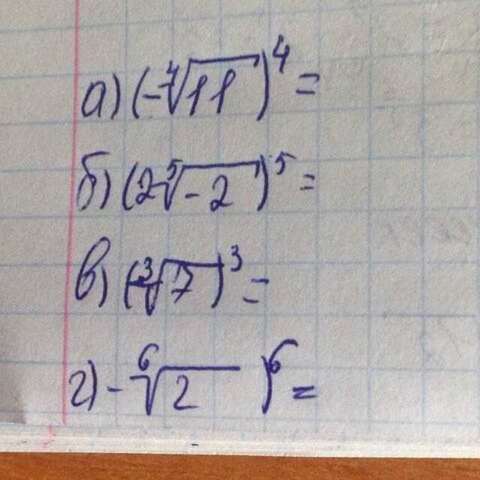 а) (-⁴√11)⁴ =
б) (2⁵√-2)⁵ =
в) (-³√7)³ =
г) -⁶√2 )⁶ =